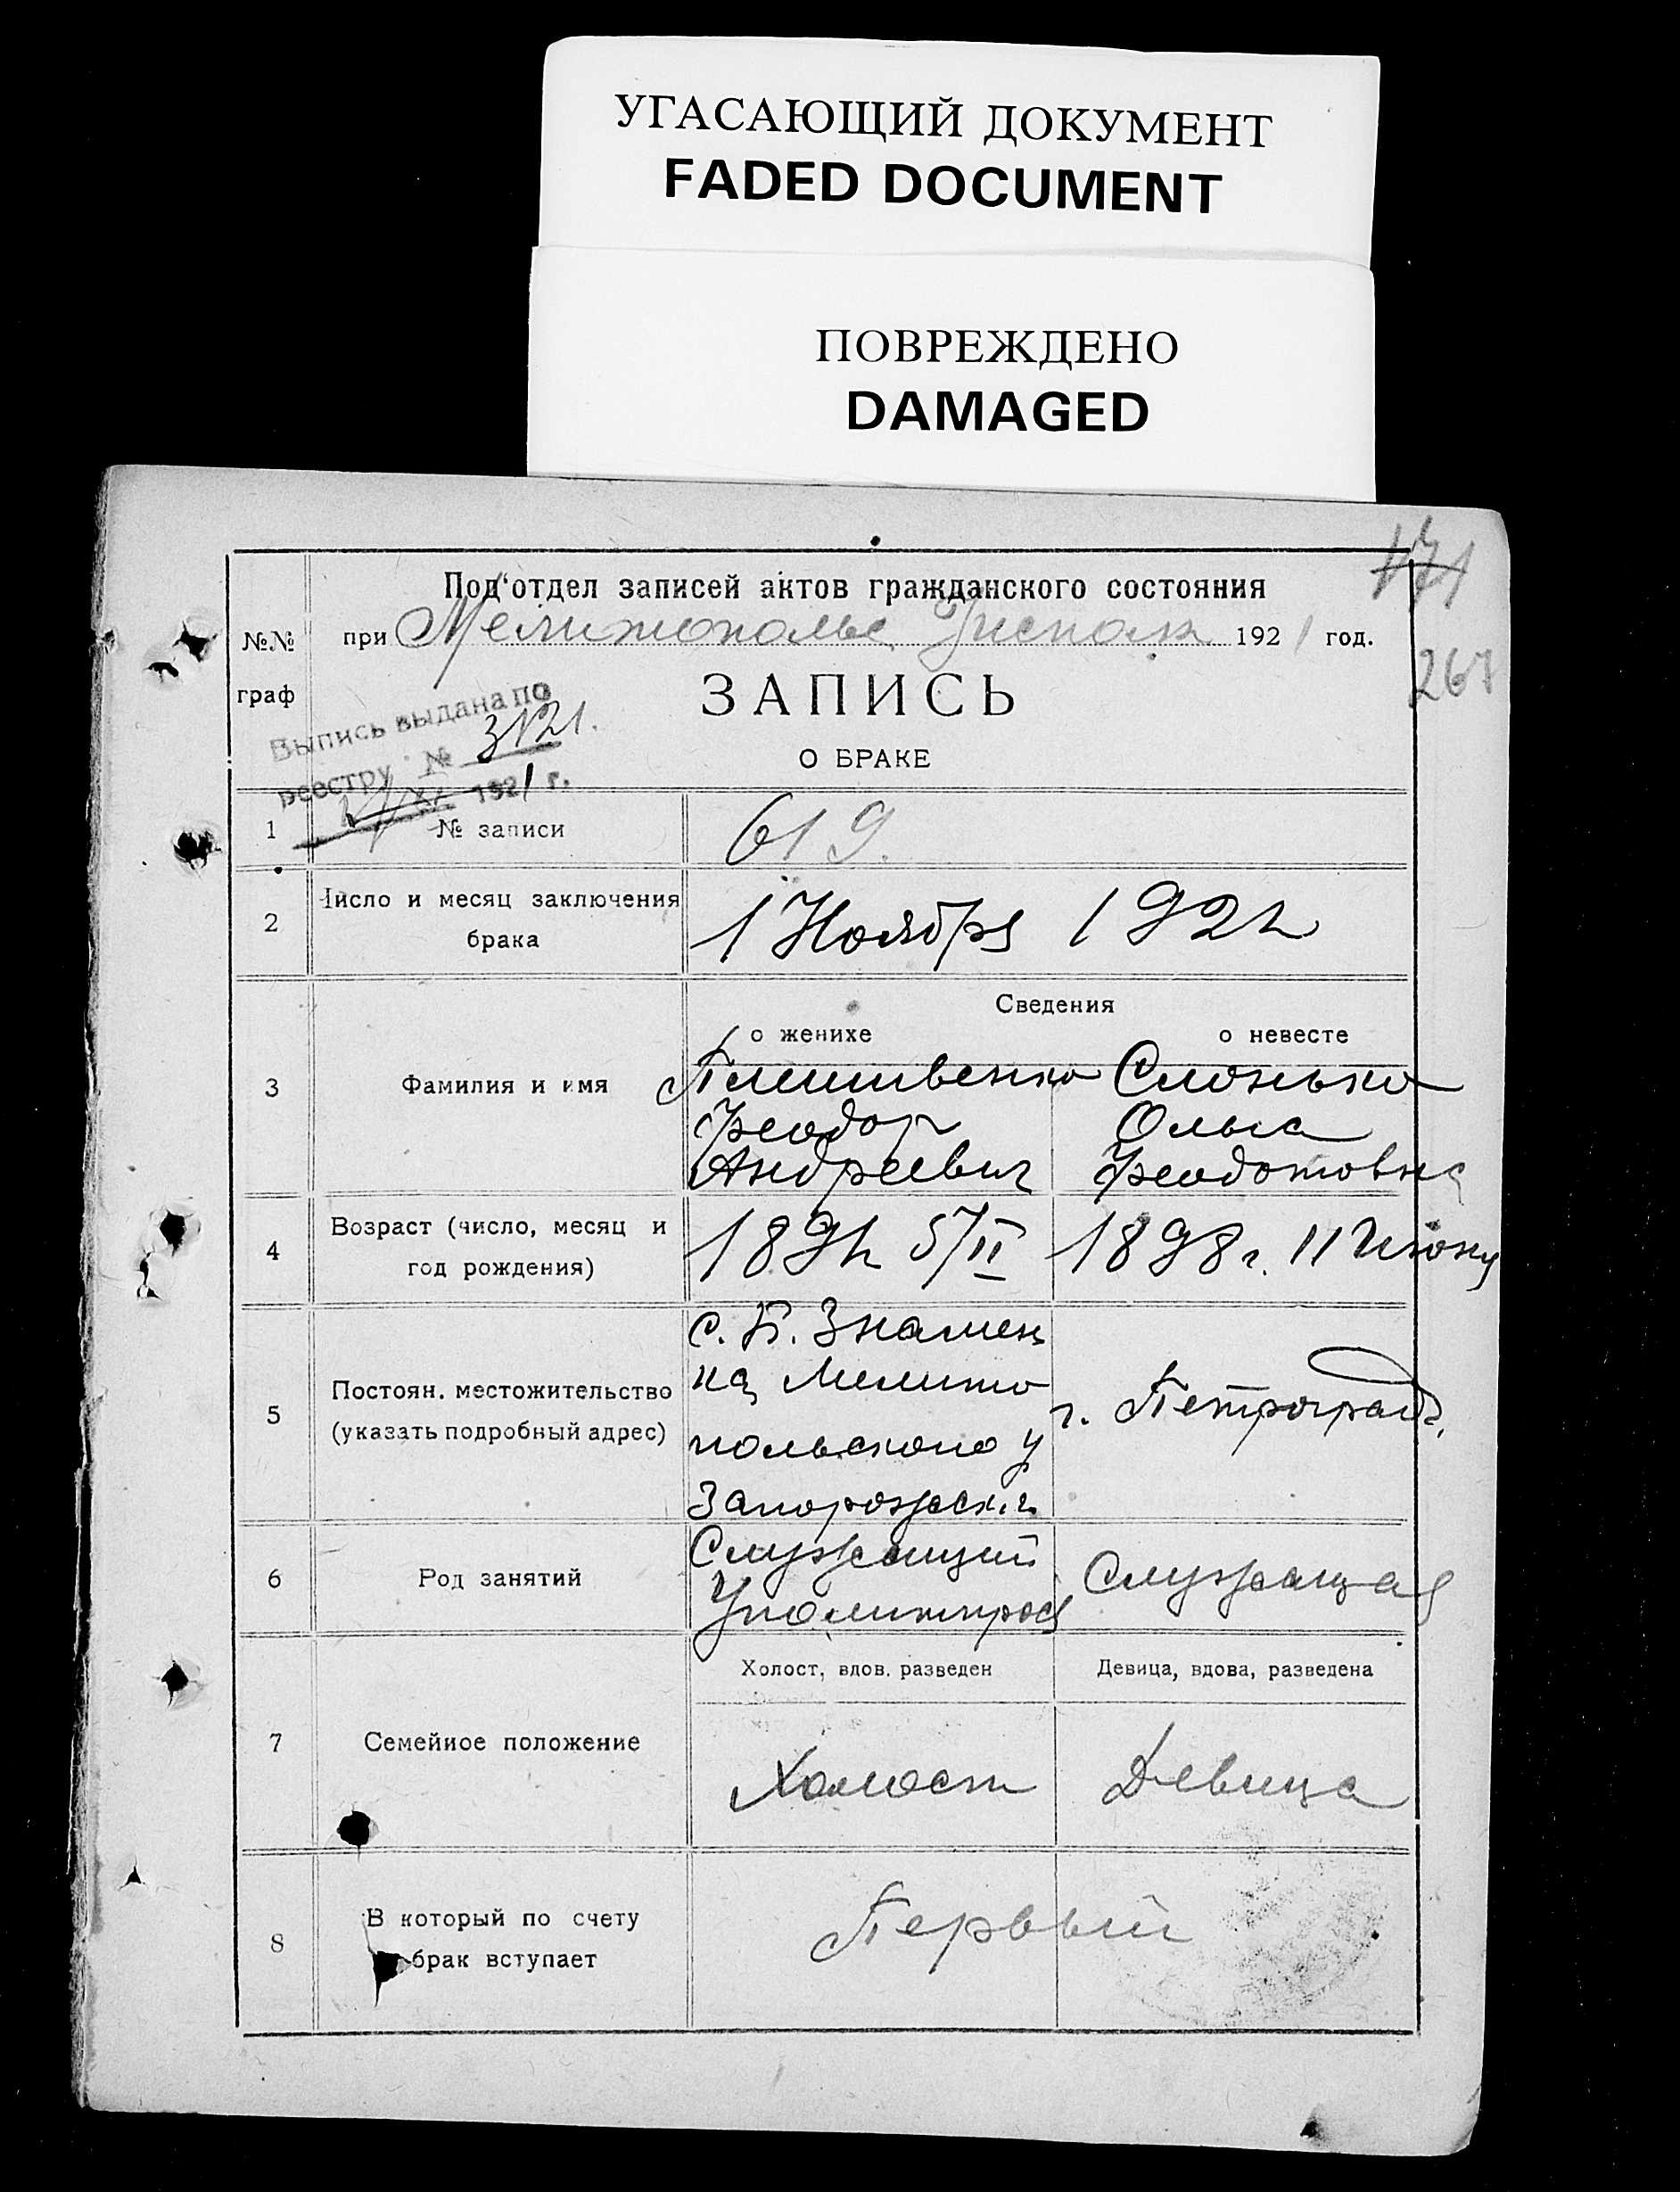 УГАСАЮЩИЙ ДОКУМЕНТ
FADED DOCUMENT
ПОВРЕЖДЕНО
DAMAGED
Под'отдел записей актов гражданского состояния
№№ граф
при Мелитополье Уисполк 1921 год.
267
ЗАПИСЬ
О БРАКЕ
Выпись выдана по
реестру № 3121.
1921 г.
1 № записи 619.
2 Число и месяц заключения брака
1 Ноября 192
Сведения
о женихе о невесте
3 Фамилия и имя
Слонько
Феодор Ольга
Андреевич Феодотовна
4 Возраст (число, месяц и год рождения)
5/II 1898 г. 11 Июня
5 Постоян. местожительство
(указать подробный адрес)
с. Б. Знамен
ка Мелито
польского у
Запорожск. г.
г. Петроград.
6 Род занятий
Служащий Служащая
7 Семейное положение
Холост, вдов. разведен Девица, вдова, разведена
Холост Девица
8 В который по счету
брак вступает
Первый